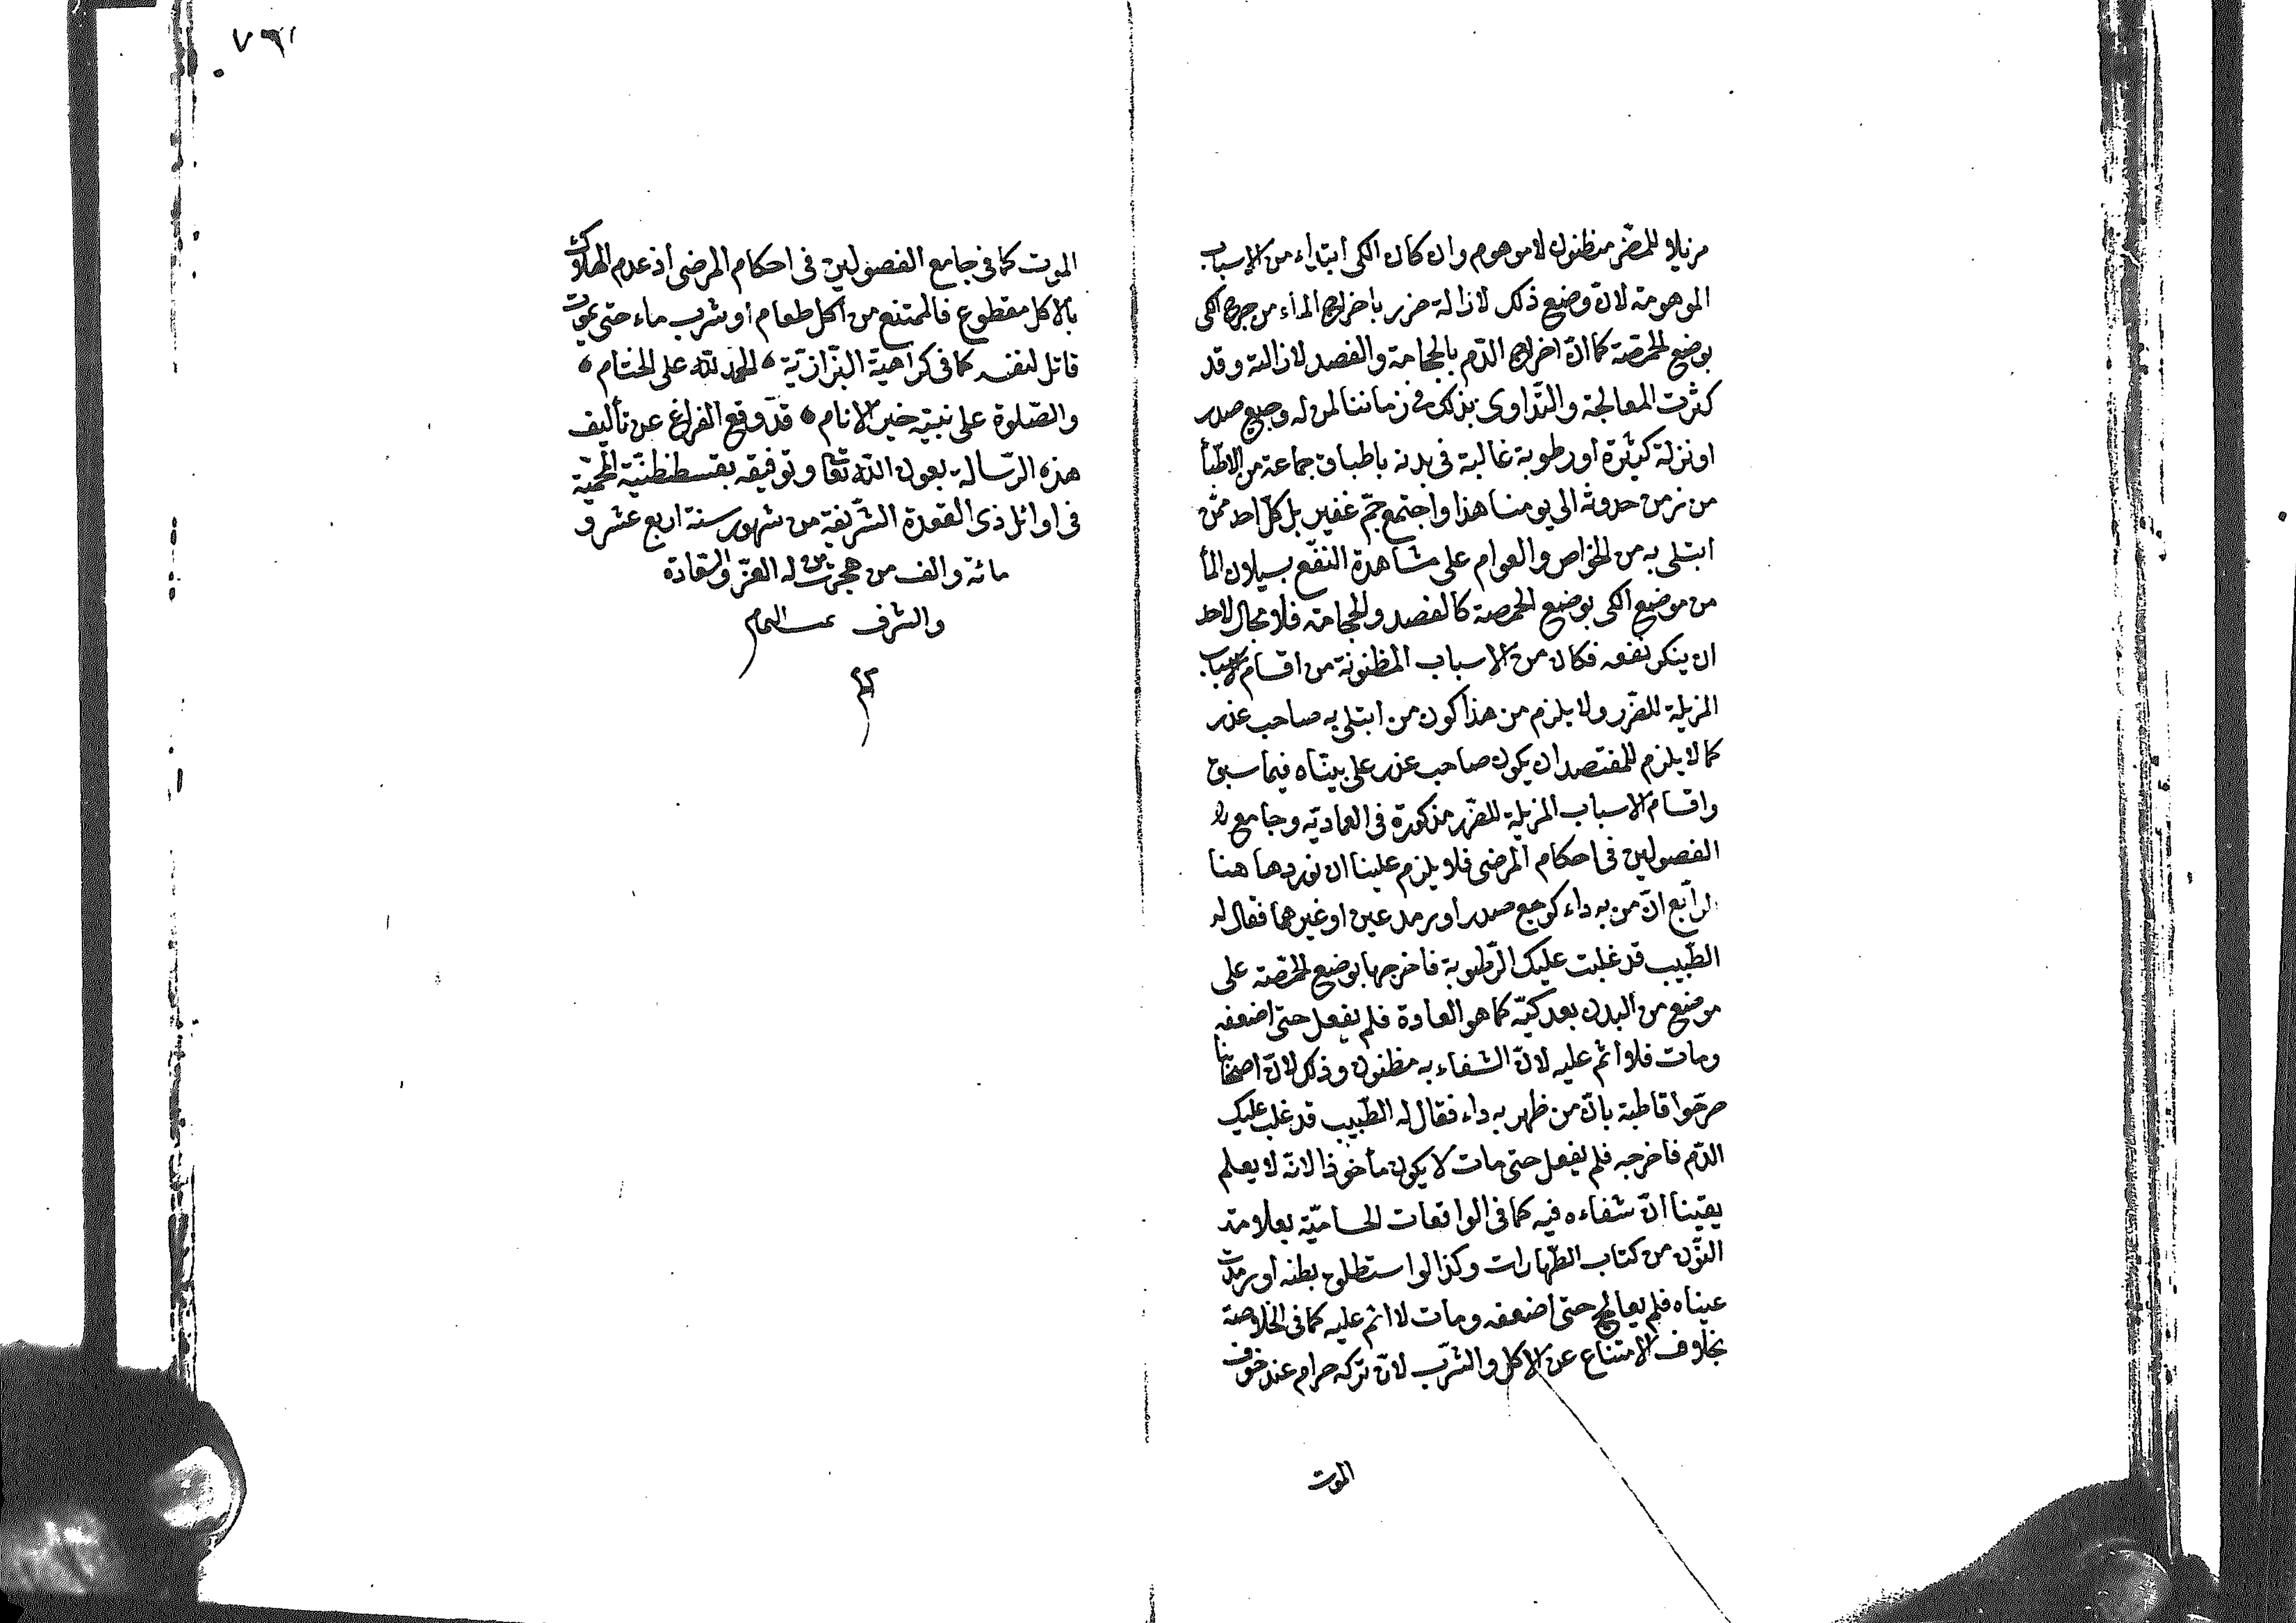 مزيلا للضرر مظنون لا موهوم وان كان الكى ابتداء من الاسباب
الموهومة لانّ وضع ذلك لازالة ضرر باخراج الماء من جرح الكى
بوضع الحمّصة كما انّ اخراج الدّم بالحجامة والفصد لازالته وقد
كثرت المعالجة والتّداوى بذلك فى زماننا لمن له وجع صدر
او نزلة كثيرة او رطوبة غالبة فى بدنه باطباق جماعة من الاطبّا
من زمن حدوثه الى يومنا هذا واجتمع جمّ غفير بل كلّ احد ممّن
ابتلى به من الخواص والعوام على مشاهدة النّفع بسيلان الما
من موضع الكى بوضع الحمصة كالفصد والحجامة فلا مجال لاحد
ان ينكر نفعه فكان من الاسباب المظنونة من اقسام الاسباب
المزيلة للضّرر ولا يلزم من هذا كون من ابتلى به صاحب عذر
كما لا يلزم للمفتصد ان يكون صاحب عذر على بيّنّاه فيما سبق
واقسام الاسباب المزيلة للضّرر مذكورة فى العماديّه وجامع
الفصولين فى احكام المرضى فلا يلزم علينا ان نوردها هنا
الرّابع انّ من به داء كوجع صدر او رمد عين او غيرهما فقال له
الطّبيب قد غلبت عليك الرّطوبة فاخرجها بوضع الحمّصة على
موضع من البدن بعد كيّه كما هو العادة فلم يفعل حتى اضعفه
ومات فلا اثم عليه لانّ الشفاء به مظنون وذلك لانّ اصحابنا
صرّحوا قاطبة بانّ من ظهر به داء فقال له الطّبيب قد غلب عليك
الدّم فاخرجه فلم يفعل حتى مات لا يكون مأخوذا لانّه لا يعلم
يقينا انّ شفاءه فيه كما فى الواقعات الحساميّة بعلامة
النّون من كتاب الطّهارات وكذا لو استطلق بطنه او رمدت
عيناه فلم يعالج حتى اضعفه ومات لا اثم عليه كما فى الخلاصة
بخلاف الامتناع عن الاكل والشّرب لانّ تركه حرام عند خوف
الموت
٧٩٢
الموت كما فى جامع الفصولين فى احكام المرضى اذ عدم الهلاك
بالاكل مقطوع فالممتنع من اكل طعام او شرب ماء حتى يموت
قاتل لنفسه كما فى كراهية البزّازيّة الحمد لله على الختام
والصّلوة على نبيّه خير الانام قد وقع الفراغ عن تأليف
هذه الرّسالة بعون الله تعا وتوفيقه بقسطنطنيّة المحميّة
فى اوائل ذى القعدة الشّريفة من شهور سنة اربع عشر و
مائة والف من هجرة من له العزّ والسّعادة
والشرف